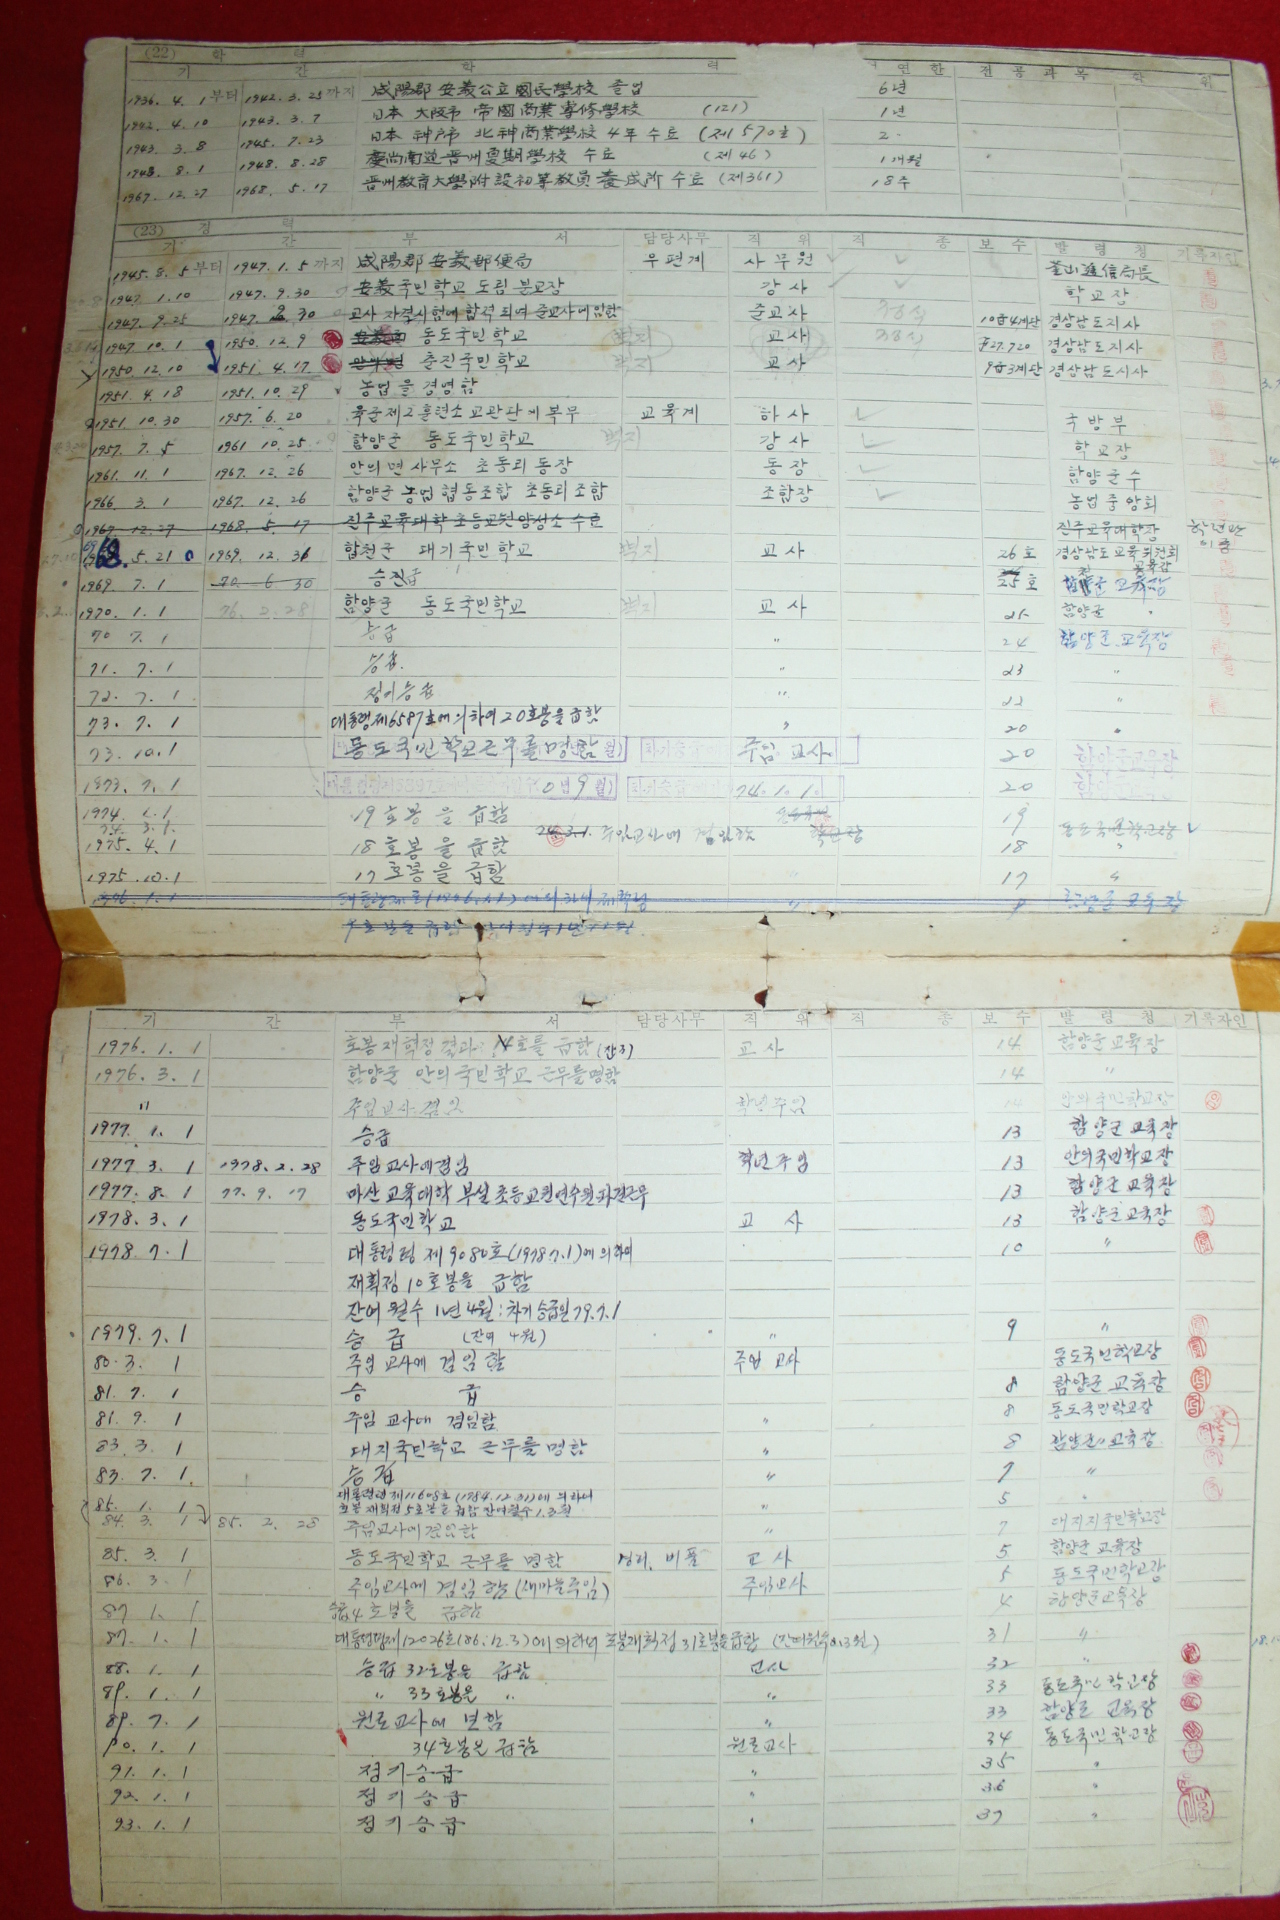 (22) 학 력
기 간 학 력 연한 전공과목 학 위
1936. 4. 1 부터 1942. 3. 25 까지 咸陽郡 安義公立國民學校 졸업 6년
1942. 4. 10 1943. 3. 7 日本 大阪市 帝國商業專修學校 (121) 1년
1943. 3. 8 1945. 7. 23 日本 神戶市 北神商業學校 4年 수료 (제1570호) 2
1948. 8. 1 1948. 8. 28 慶尙南道 晋州夏期學校 수료 (제46) 1개월
1967. 12. 27 1968. 5. 17 晋州敎育大學附設初等敎員養成所 수료 (제361) 18주
(23) 경 력
기 간 부 서 담당사무 직 위 직 종 보 수 발 령 청 기록자인
1945. 8. 5 부터 1947. 1. 5 까지 咸陽郡 安義郵便局 우편계 사무원 釜山遞信局長
1947. 1. 10 1947. 9. 30 安義국민학교 도림분교장 강사 학교장
1947. 9. 25 1947. 9. 30 교사 자격시험에 합격되여 준교사에 임함 준교사 10급4계단 경상남도지사
1947. 10. 1 1950. 12. 9 동도국민학교 교사 27.720 경상남도지사
1950. 12. 10 1951. 4. 17 춘진국민학교 교사 9급3계단 경상남도지사
1951. 4. 18 1951. 10. 29 농업을 경영함
1951. 10. 30 1957. 6. 20 육군제2훈련소 교관단에 복무 교육계 하사 국방부
1957. 7. 5 1961 10. 25 함양군 동도국민학교 강사 학교장
1961. 11. 1 1967. 12. 26 안의면사무소 초동리 동장 동장 함양군수
1966. 3. 1 1967. 12. 26 함양군 농업협동조합 초동리조합 조합장 농업중앙회
1967. 12. 27 1968. 5. 17 진주교육대학 초등교원양성소 수료 진주교육대학장
5. 21 1969. 12. 31 합천군 대기국민학교 교사 26호 경상남도교육위원회 교육감
1969. 7. 1 70. 6 30 승진급 25호 함양군 교육장
1970. 1. 1 76. 2. 28 함양군 동도국민학교 교사 25 함양군 "
70 7. 1 승급 " 24 함양군 교육장
71. 7. 1 승급 " 23 "
72. 7. 1 정기승급 " 22 "
73. 7. 1 대통령제6587호에 의하여 20호봉을 급함 " 20 "
73. 10. 1 동도국민학교근무를 명함 주임 교사 20 함양군교육장
1973. 7. 1 9월) 74. 10. 1 20 함양군교육장
1974. 1. 1 19호봉을 급함 19
74. 3. 1. 74. 3. 1. 주임교사에 겸임함 동도국민학교장
1975. 4. 1 18호봉을 급함 18 "
1975. 10. 1 17호봉을 급함 17 "
1976. 1. 1
기 간 부 서 담당사무 직 위 직 종 보 수 발 령 청 기록자인
1976. 1. 1 호봉재획정결과 14호를 급함 교 사 14 함양군교육장
1976. 3. 1 함양군 안의국민학교 근무를 명함 14 "
" 주임교사 겸임 학년주임 14 안의국민학교장
1977. 1. 1 승급 13 함양군 교육장
1977 3. 1 1978. 2. 28 주임교사에 겸임 학년주임 13 안의국민학교장
1977. 8. 1 77. 9. 17 마산교육대학 부설 초등교원연수원파견근무 13 함양군 교육장
1978. 3. 1 동도국민학교 교 사 13 함양군교육장
1978. 7. 1 대통령령 제9080호(1978.7.1)에 의하여 10 "
재획정 10호봉을 급함
잔여월수 1년 4월 : 차기승급일 79. 7. 1
1979. 7. 1 승 급 (잔여 4월) " 9 "
80. 3. 1 주임교사에 겸임함 주임 교사 동도국민학교장
81. 7. 1 승 급 8 함양군 교육장
81. 9. 1 주임 교사에 겸임함 " 8 동도국민학교장
83. 3. 1 대지국민학교 근무를 명함 " 8 함양군 교육장
83. 7. 1 승급 " 7 "
85. 1. 1 대통령령제11608호 (1984.12.31)에 의하여 " 5 "
호봉재획정 5호봉을 급함 잔여월수 1. 3월
84. 3. 1 85. 2. 28 주임교사에 겸임함 " 7 대지국민학교장
85. 3. 1 동도국민학교 근무를 명함 경리, 비품 교 사 5 함양군 교육장
86. 3. 1 주임교사에 겸임함 (새마을주임) 주임교사 5 동도국민학교장
87 1. 1 승급4호봉을 급함 4 함양군교육장
87. 1. 1 대통령령제12026호(86.12.3)에 의하여 호봉재획정 31호봉을급함 31 "
88. 1. 1 승급 32호봉을 급함 교사 32 "
89. 1. 1 " 33호봉을 " " 33 동도국민학교장
89. 7. 1 원로교사에 면함 " 33 함양군 교육장
90. 1. 1 34호봉을 급함 원로교사 34 동도국민학교장
91. 1. 1 정기승급 " 35 "
92. 1. 1 정기승급 " 36 "
93. 1. 1 정기승급 " 37 "